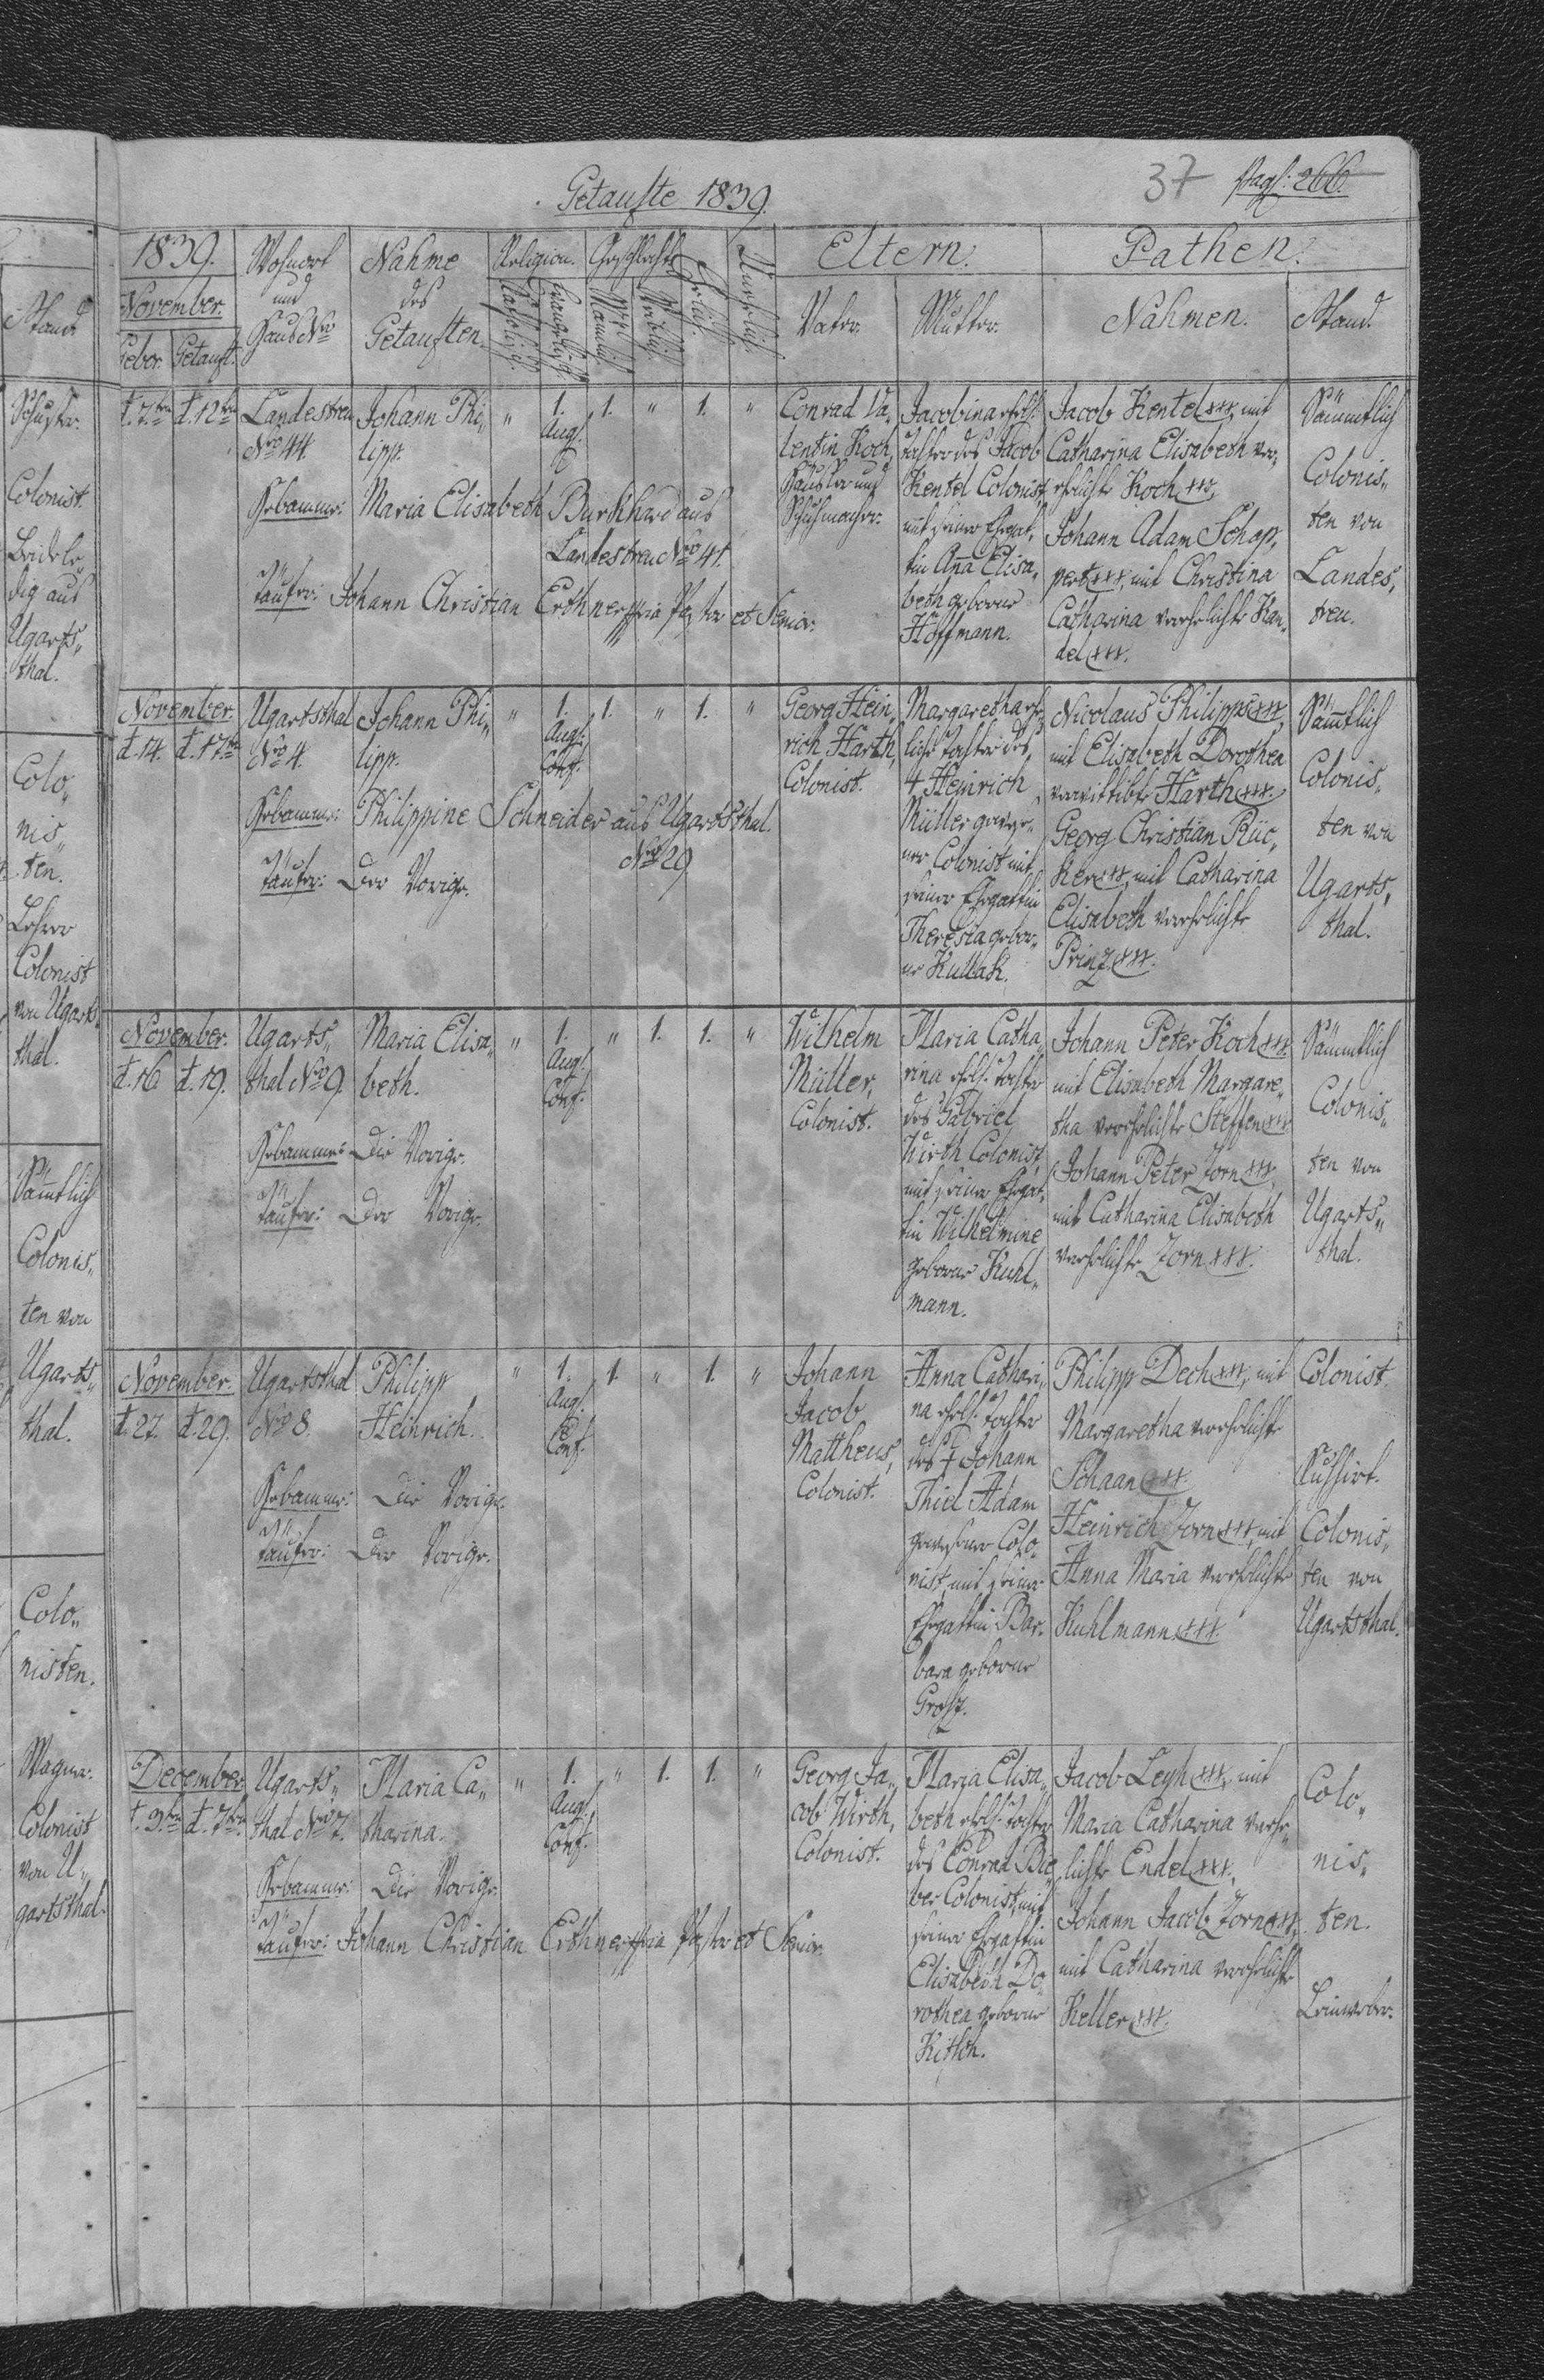 Getaufte 1839.
37 pag: 266.
1839.
November.
Gebor. Getauft.
Wohnort
und
Haus Nro
Nahme
des
Getauften.
Religion.
Katholisch.
Evangelisch.
Geschlecht.
Männlich.
Weiblich.
Ehelich.
Unehelich.
Eltern.
Vater.
Mutter.
Pathen.
Nahmen.
Stand.
d. 7ten d. 12ten
Landestreu
Nro 44.
Johann Phi„
lipp.
„ 1. 1. „ 1. „
Aug.
C
Hebamme: Maria Elisabeth Burkhard aus
Landestreu Nro 41.
Täufer: Johann Christian Erthner mpria Pastor et Senior.
Conrad Va„
lentin Koch,
Häusler und
Schuhmacher.
Jacobina ehel.
Tochter des Jacob
Kentel Colonist,
mit seiner Ehegat„
tin Aña Elisa„
beth geborne
Hoffmann.
Jacob Kentel +++, mit
Catharina Elisabeth ver„
ehelichte Koch +++,
Johann Adam Schap„
pert +++, mit Christina
Catharina verehelichte Kan„
del +++.
Sämmtlich
Colonis„
ten von
Landes„
treu.
November.
d. 14. d. 17ten
Ugartsthal
Nro 4.
Johann Phi„
lipp.
„ 1. 1. „ 1. „
Aug.
Conf.
Hebamme: Philippine Schneider aus Ugartsthal.
Nro 29
Täufer: Der Vorige.
Georg Hein„
rich Harth,
Colonist.
Margaretha ehe„
liche Tochter des
+ Heinrich
Müller gewese„
ner Colonist mit
seiner Ehegattin
Theresia gebor„
ne Kullak.
Nicolaus Philipps +++,
mit Elisabeth Dorothea
verwittibte Harth +++.
Georg Christian Rüc„
ker +++, mit Catharina
Elisabeth verehelichte
Prinz +++.
Säm̄tlich
Colonis„
ten von
Ugarts„
thal.
November.
d. 16. d. 19.
Ugarts„
thal Nro 9.
Maria Elisa„
beth.
„ 1. „ 1. 1. „
Aug.
Conf.
Hebamme: Die Vorige.
Täufer: Der Vorige.
Wilhelm
Müller,
Colonist.
Maria Catha„
rina ehel. Tochter
des Gabriel
Wirth Colonist,
mit seiner Ehegat„
tin Wilhelmine
geborne Kuhl„
mann.
Johann Peter Koch +++.
mit Elisabeth Margare„
tha verehelichte Steffen +++
Johann Peter Zorn +++,
mit Catharina Elisabeth
verehelichte Zorn +++.
Sämmtlich
Colonis„
ten von
Ugarts„
thal.
November.
d. 27. d. 29.
Ugartsthal
Nro 8.
Philipp
Heinrich.
„ 1. 1. „ 1. „
Aug.
Conf.
Hebamme: Die Vorige.
Täufer: Der Vorige.
Johann
Jacob
Mattheus,
Colonist.
Anna Cathari„
na ehel. Tochter
des + Johann
Thiel Adam
gewesener Colo„
nist, mit seiner
Ehegattin Bar„
bara geborne
Grosz.
Philipp Dech +++, mit
Margaretha verehelichte
Schaan +++.
Heinrich Zorn +++, mit
Anna Maria verehelichte
Kuhlmann +++.
Colonist.
Colonis„
ten von
Ugartsthal.
December.
d. 3ten d. 7ten
Ugarts„
thal Nro 7.
Maria Ca„
tharina.
„ 1. „ 1. 1. „
Aug.
Conf.
Hebamme: Die Vorige.
Täufer: Johann Christian Erthner mpria Pastor et Senior.
Georg Ja„
cob Wirth,
Colonist.
Maria Elisa„
beth ehel. Tochter
des Conrad Bie„
ber Colonist, mit
seiner Ehegattin
Elisabeth Do„
rothea geborne
Jacob Leyh +++, mit
Maria Catharina verehe„
lichte Endel +++,
Johann Jacob Zorn +++,
mit Catharina verehelichte
Keller +++.
Colo„
nis„
ten.
Leineweber.
Stand
Schuster.
Colonist.
Beide le„
dig aus
Ugarts„
thal.
Colo„
nis„
ten.
Lehrer
Colonist
von Ugarts„
thal.
Säm̄tlich
Colonis„
ten von
Ugarts„
thal.
Colo„
nisten.
Wagner.
Colonist
von U„
gartsthal.